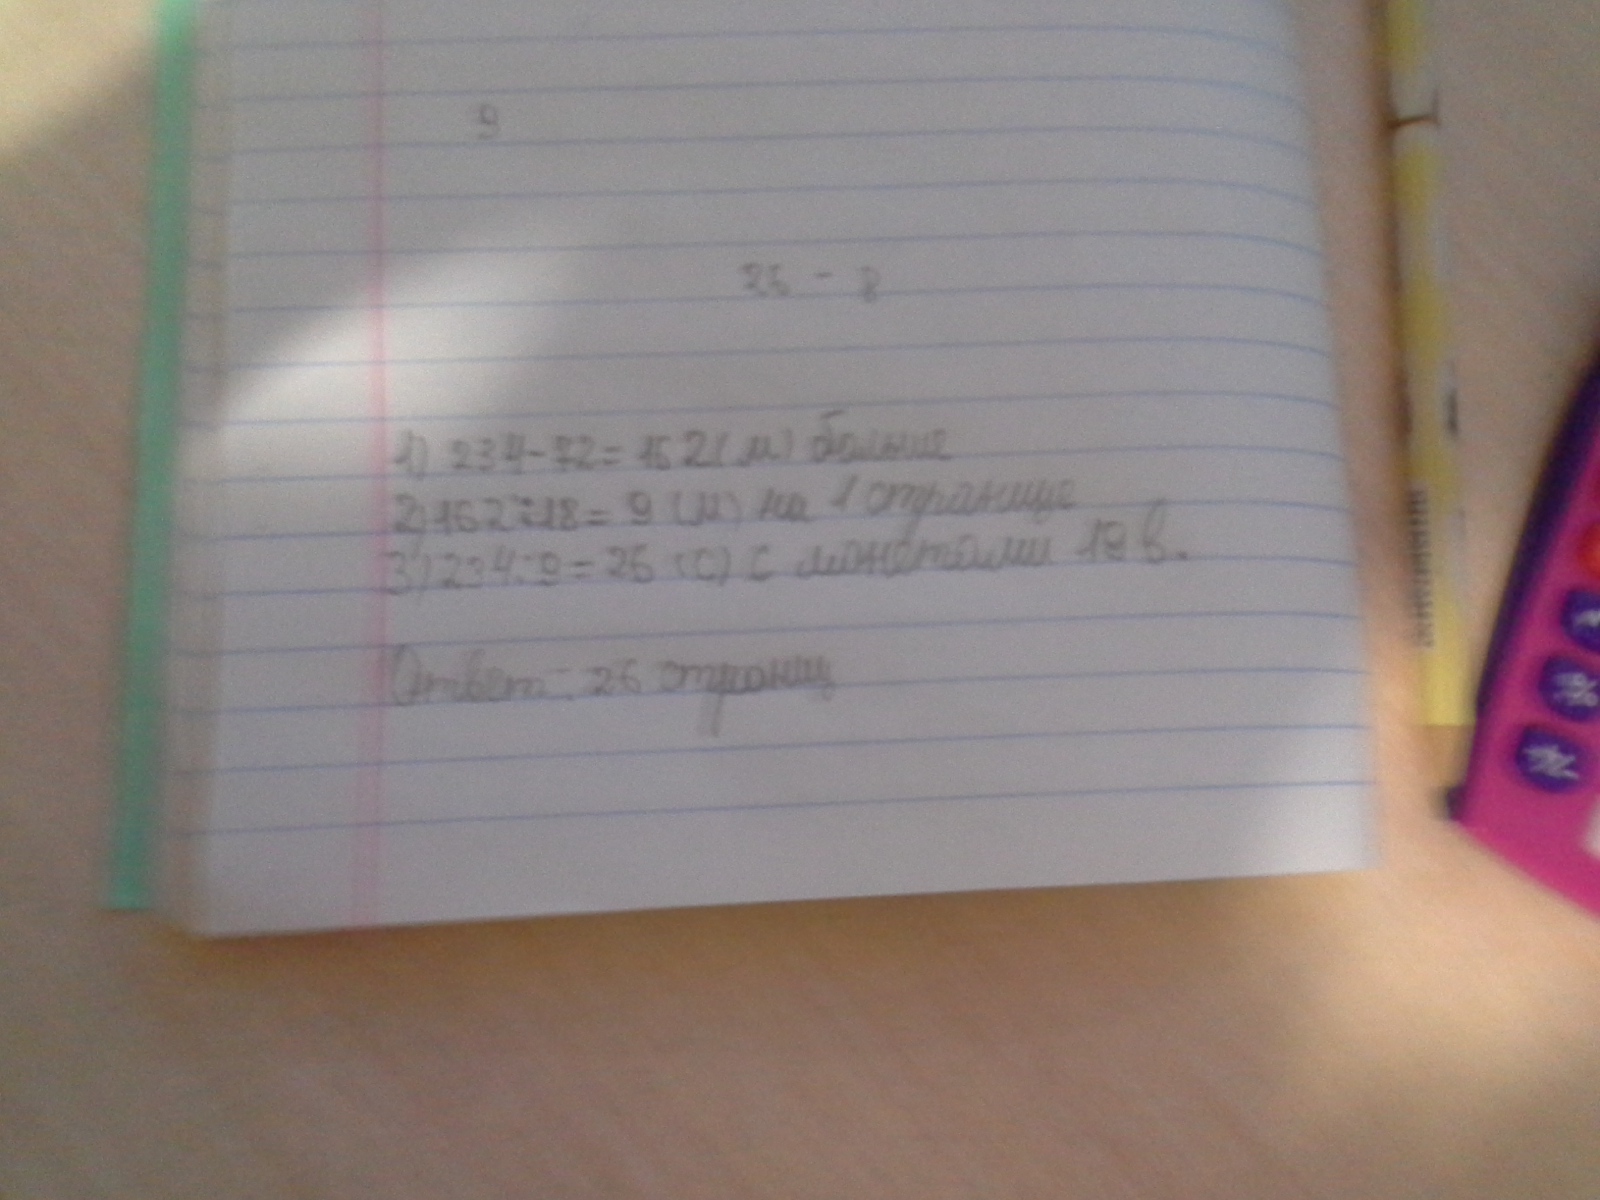 9
26 - 8
1) 234-72=162(м) больше
2) 162:18= 9 (м) на 1 странице
3) 234:9=26 (с) с монетами 19 в.
Ответ: 26 страниц